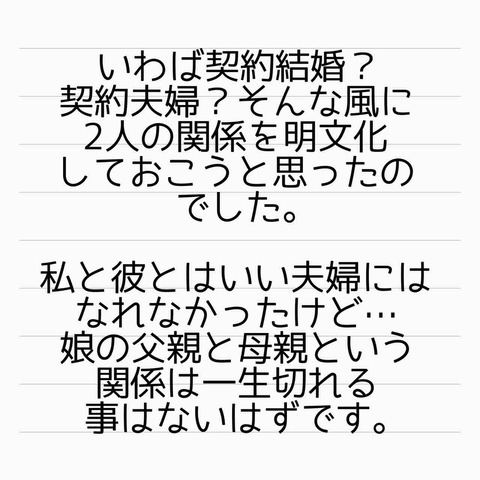 いわば契約結婚？
契約夫婦？そんな風に
2人の関係を明文化
しておこうと思ったの
でした。
私と彼とはいい夫婦には
なれなかったけど…
娘の父親と母親という
関係は一生切れる
事はないはずです。